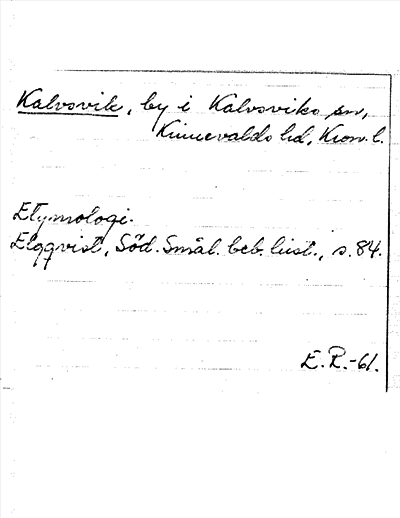 Kalvsvik, by i Kalvsviks sn,
Kinnevalds hd, Kron. l.
Etymologi.
Elgqvist, Söd. Smål. beb. hist., s. 84.
E. R.-61.